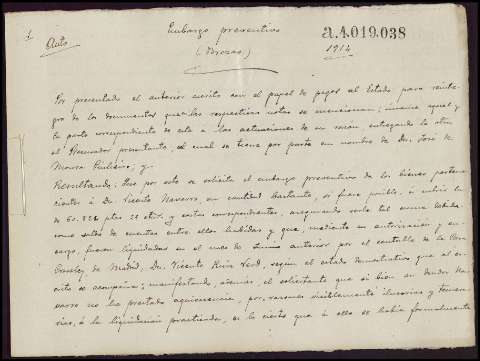 1
Auto
Embargo preventivo
(Brozas)
a.4.019.038
1914
Por presentado el anterior escrito con el papel de pagos al Estado para reinte-
gro de los documentos que en las respectivas notas se mencionan; únanse aquel y
la parte correspondiente de este a las actuaciones de su razón, entregando la otra
al Procurador presentante, al cual se tiene por parte en nombre de Dn. José de
Moura ; y
Resultando: Que por este se solicita el embargo preventivo de los bienes pertene-
cientes á Dn. Vicente Navarro, en cantidad bastante, si fuera posible, á cubrir la
de 60.822 ptas 20 cts. y costas correspondientes, asegurando serle tal suma debida
como saldo de cuentas entre ellos habidas y que, mediante su autorización y en-
cargo, fueron liquidadas en el mes de Junio anterior por el contable de la
de Madrid, Dn. Vicente , según el estado demostrativo que al es-
crito se acompaña; manifestando, además, el solicitante que si bien su deudor Na-
varro no ha prestado aquiescencia, por razones visiblemente ilusorias y
, á la liquidación practicada, es lo cierto que á ello se había formalmente